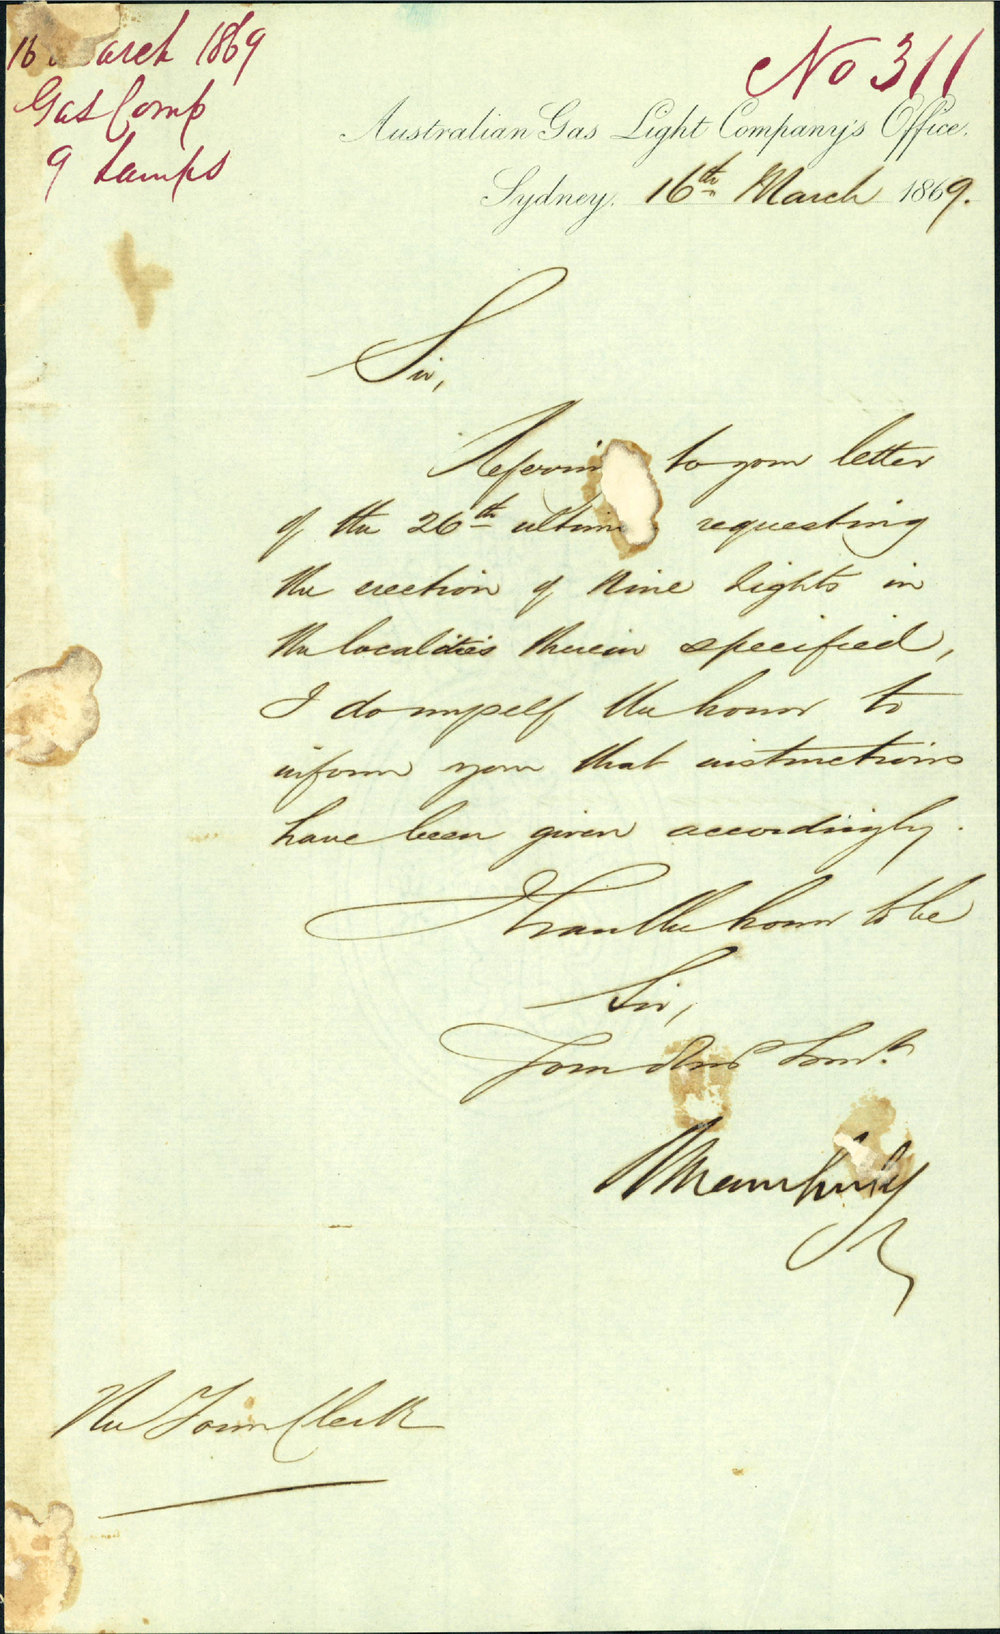 16 March 1869
Gas Comp
9 Lamps
No 311
Australian Gas Light Company's Office.
Sydney, 16th March 1869.
Sir,
Referrin to your letter
of the 26th ultim requesting
the erection of Nine Lights in
the localities therein specified,
I do myself the honor to
inform you that instructions
have been given accordingly.
I have the honor to be
Sir,
Your Obed Servt.
The Town Clerk